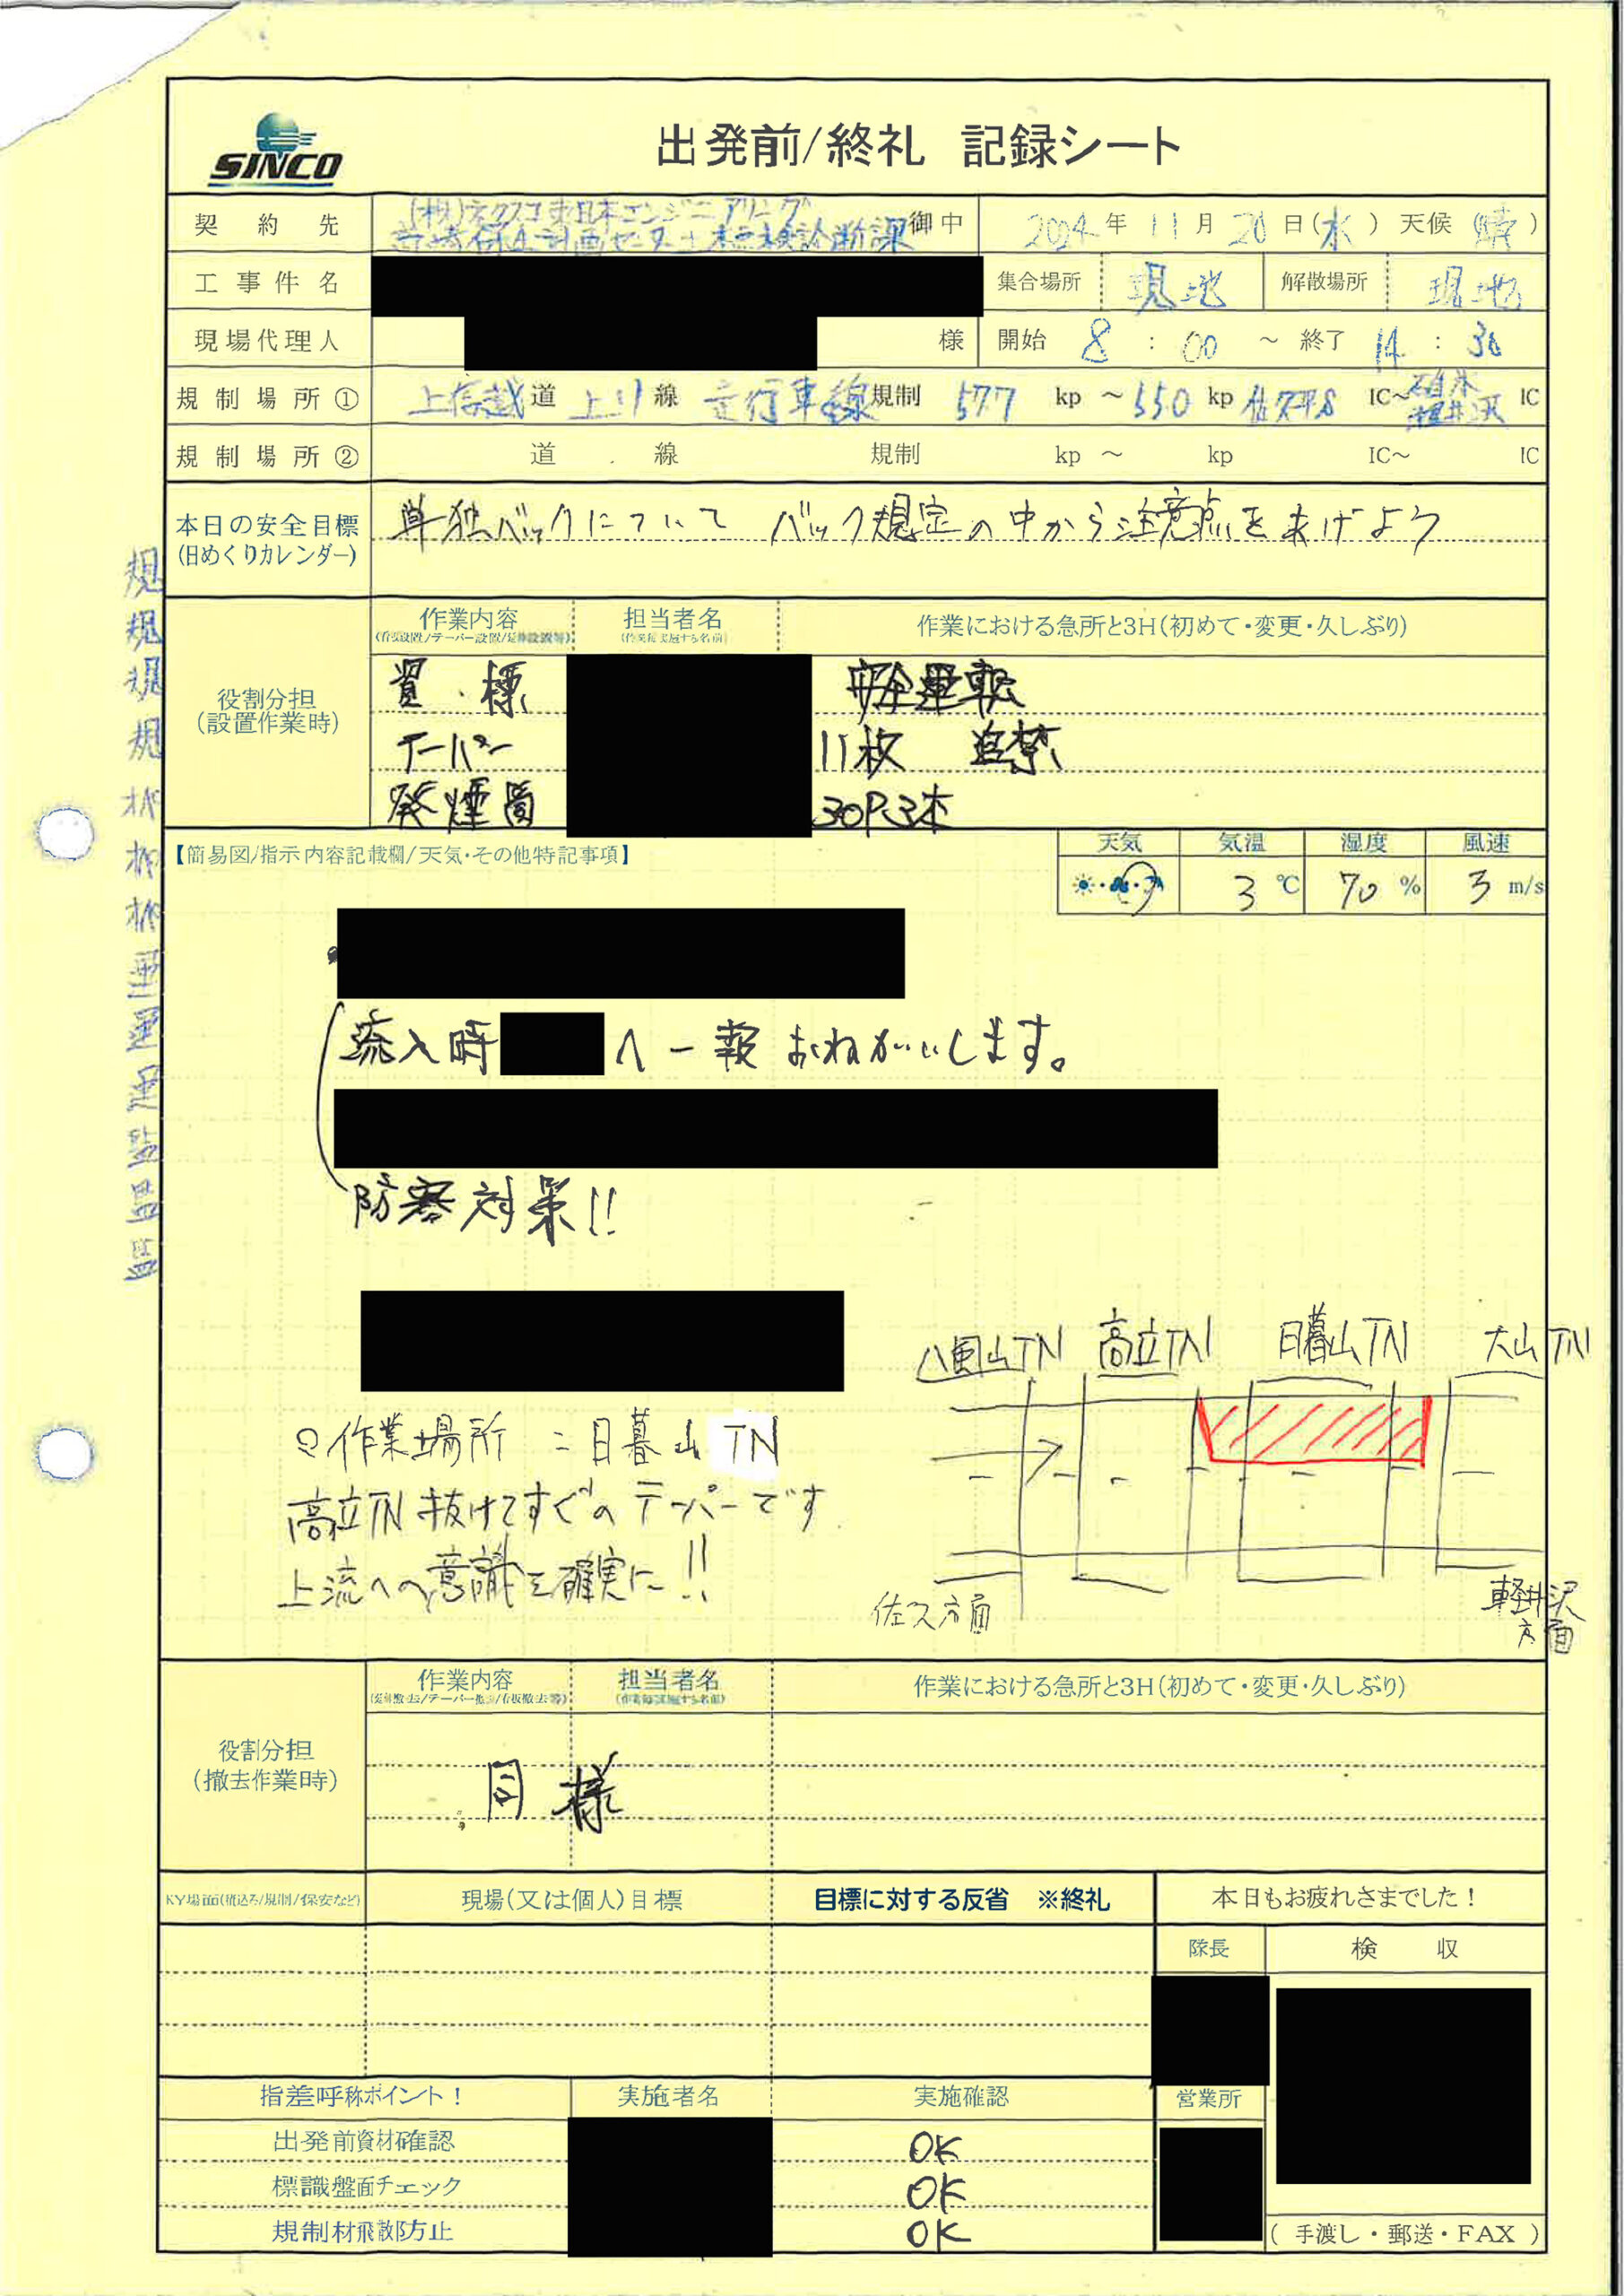 SINCO
出発前/終礼 記録シート
契約先 (株)ネクスコ東日本エンジニアリング 御中
2024年11月20日(水) 天候(晴)
工事件名
集合場所 現地 解散場所 現地
現場代理人 様 開始 8:00 ～ 終了 14:30
規制場所① 上信越道 上り線 走行車線規制 577 kp ～ 550 kp 佐久平S IC～碓氷軽井沢 IC
規制場所② 道 線 規制 kp ～ kp IC～ IC
本日の安全目標
(日めくりカレンダー)
単独バックについて バック規定の中から注意点をあげよう
役割分担
(設置作業時)
作業内容 担当者名 作業における急所と3H(初めて・変更・久しぶり)
標 安全運転
テーパー 11枚 追禁
発煙筒 30P3本
【簡易図/指示内容記載欄/天気・その他特記事項】
天気 気温 湿度 風速
3℃ 70% 3m/s
流入時 へ一報おねがいします。
防寒対策!!
八風山TN 高立TN 日暮山TN 大山TN
作業場所 = 日暮山TN
高立TN抜けてすぐのテーパーです
上流への意識を確実に!!
佐久方面
軽井沢方面
規
規
規
規
監
監
監
役割分担
(撤去作業時)
作業内容 担当者名 作業における急所と3H(初めて・変更・久しぶり)
同様
KY場面(積込み/規制/保安など) 現場(又は個人)目標 目標に対する反省 ※終礼 本日もお疲れさまでした!
隊長 検収
指差呼称ポイント! 実施者名 実施確認 営業所
出発前資材確認 OK
標識盤面チェック OK
規制材飛散防止 OK
(手渡し・郵送・FAX)